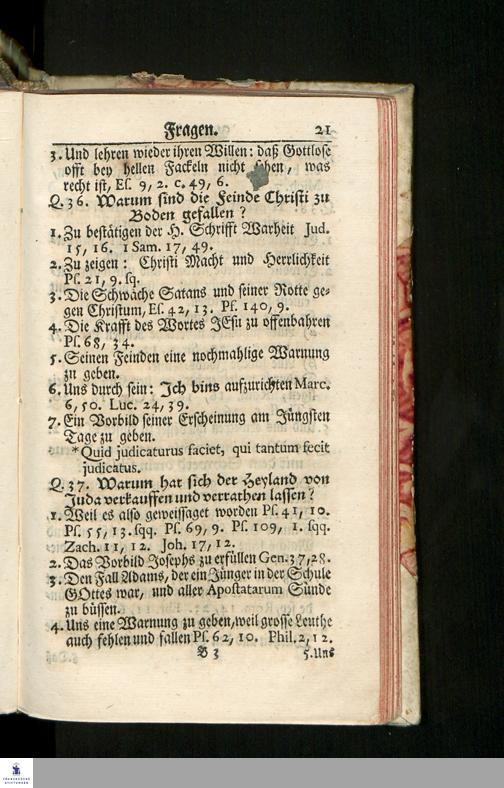 Fragen. 21
3. Und lehren wieder ihren Willen: daß Gottlose
offt bey hellen Fackeln nicht sehen, was
recht ist, Es. 9, 2. c. 49, 6.
Q. 36. Warum sind die Feinde Christi zu
Boden gefallen?
1. Zu bestätigen der H. Schrifft Warheit Jud.
15, 16. 1 Sam. 17, 49.
2. Zu zeigen: Christi Macht und Herrlichkeit
Ps. 21, 9. sq.
3. Die Schwäche Satans und seiner Rotte ge-
gen Christum, Es. 42, 13. Ps. 140, 9.
4. Die Krafft des Wortes JEsu zu offenbahren
Ps. 68, 34.
5. Seinen Feinden eine nochmahlige Warnung
zu geben.
6. Uns durch sein: Jch bins aufzurichten Marc.
6, 50. Luc. 24, 39.
7. Ein Vorbild seiner Erscheinung am Jüngsten
Tage zu geben.
* Quid judicaturus faciet, qui tantum fecit
judicatus.
Q. 37. Warum hat sich der Heyland von
Juda verkauffen und verrathen lassen?
1. Weil es also geweissaget worden Ps. 41, 10.
Ps. 55, 13. sqq. Ps. 69, 9. Ps. 109, 1. sqq.
Zach. 11, 12. Joh. 17, 12.
2. Das Vorbild Josephs zu erfüllen Gen. 37, 28.
3. Den Fall Adams, der ein Jünger in der Schule
GOttes war, und aller Apostatarum Sünde
zu büssen.
4. Uns eine Warnung zu geben, weil grosse Leuthe
auch fehlen und fallen Ps. 62, 10. Phil. 2, 12.
B 3 5. Uns
FRANCKESCHE
STIFTUNGEN